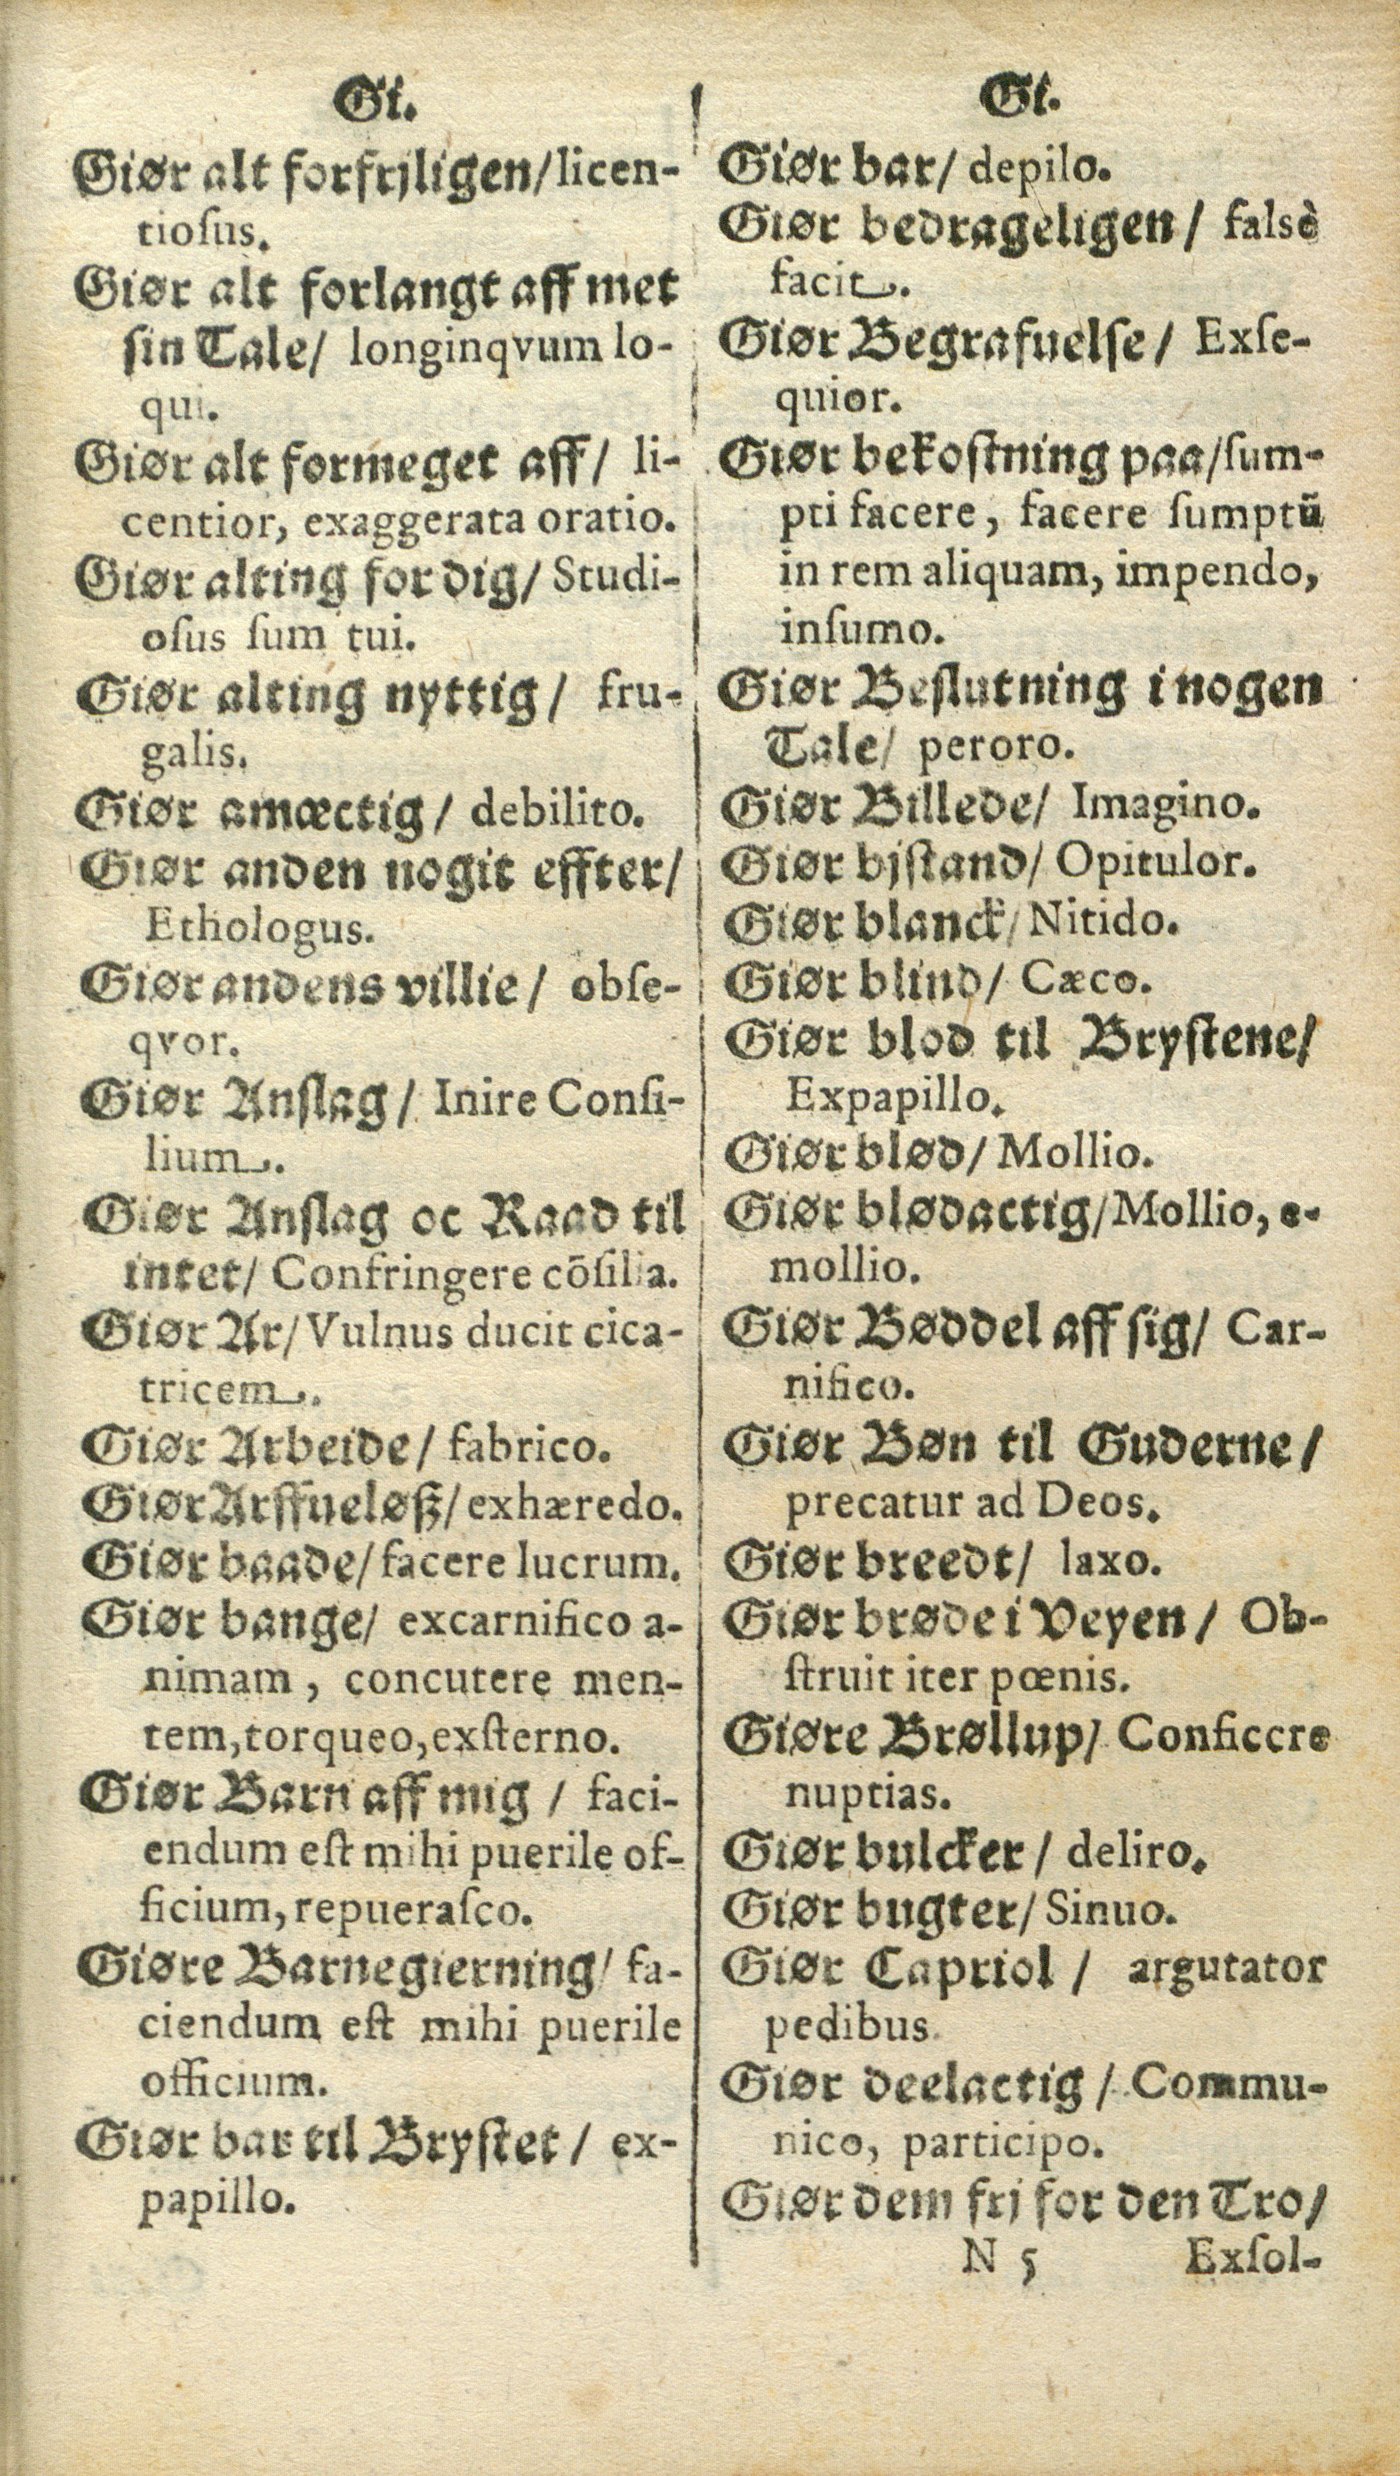 Gi.
Giør alt forfrjligen/licen-
tioſus.
Giør alt forlangt aff met
ſin Tale/ longinqvum lo-
qui.
Giør alt formeget aff/ li-
centior, exaggerata oratio.
Giør alting for dig/ Studi-
oſus ſum tui.
Giør alting nyttig/ fru-
galis.
Giør amæctig/ debilito.
Giør anden nogit effter/
Ethologus.
Giør andens villie/ obſe-
qvor.
Giør Anſlag/ Inire Conſi-
lium.
Giør Anſlag oc Raad til
intet/ Confringere cõſilia.
Giør Ar/Vulnus ducit cica-
tricem.
Giør Arbeide/ fabrico.
Giør Arffueløß/exhæredo.
Giør baade/facere lucrum.
Giør bange/ excarnifico a-
nimam, concutere men-
tem,torqueo,exſterno.
Giør Barn aff mig / faci-
endum eſt mihi puerile of-
ficium,repueraſco.
Giøre Barnegierning/ fa-
ciendum eſt mihi puerile
officium.
Giør bar til Bryſtet/ ex-
papillo.
Gi.
Giør bar/ depilo.
Giør bedrageligen/ falsè
facit.
Giør Begrafuelſe/ Exſe-
quior.
Giør bekoſtning paa/ſum-
pti facere, facere ſumptũ
in rem aliquam, impendo,
inſumo.
Giør Beſlutning i nogen
Tale/ peroro.
Giør Billede/ Imagino.
Giør bjſtand/ Opitulor.
Giør blanck/Nitido.
Giør blind/ Cæco.
Giør blod til Bryſtene/
Expapillo.
Giør blød/ Mollio.
Giør blødactig/Mollio, e-
mollio.
Giør Bøddel aff ſig/ Car-
nifico.
Giør Bøn til Guderne/
precatur ad Deos.
Giør breedt/ laxo.
Giør brøde i Veyen/ Ob-
ſtruit iter pœnis.
Giøre Brøllup/ Conficere
nuptias.
Giør bulcker/ deliro.
Giør bugter/ Sinuo.
Giør Capriol/ argutator
pedibus.
Giør deelactig/ Commu-
nico, participo.
Giør dem frj for den Tro/
N 5 Exſol-